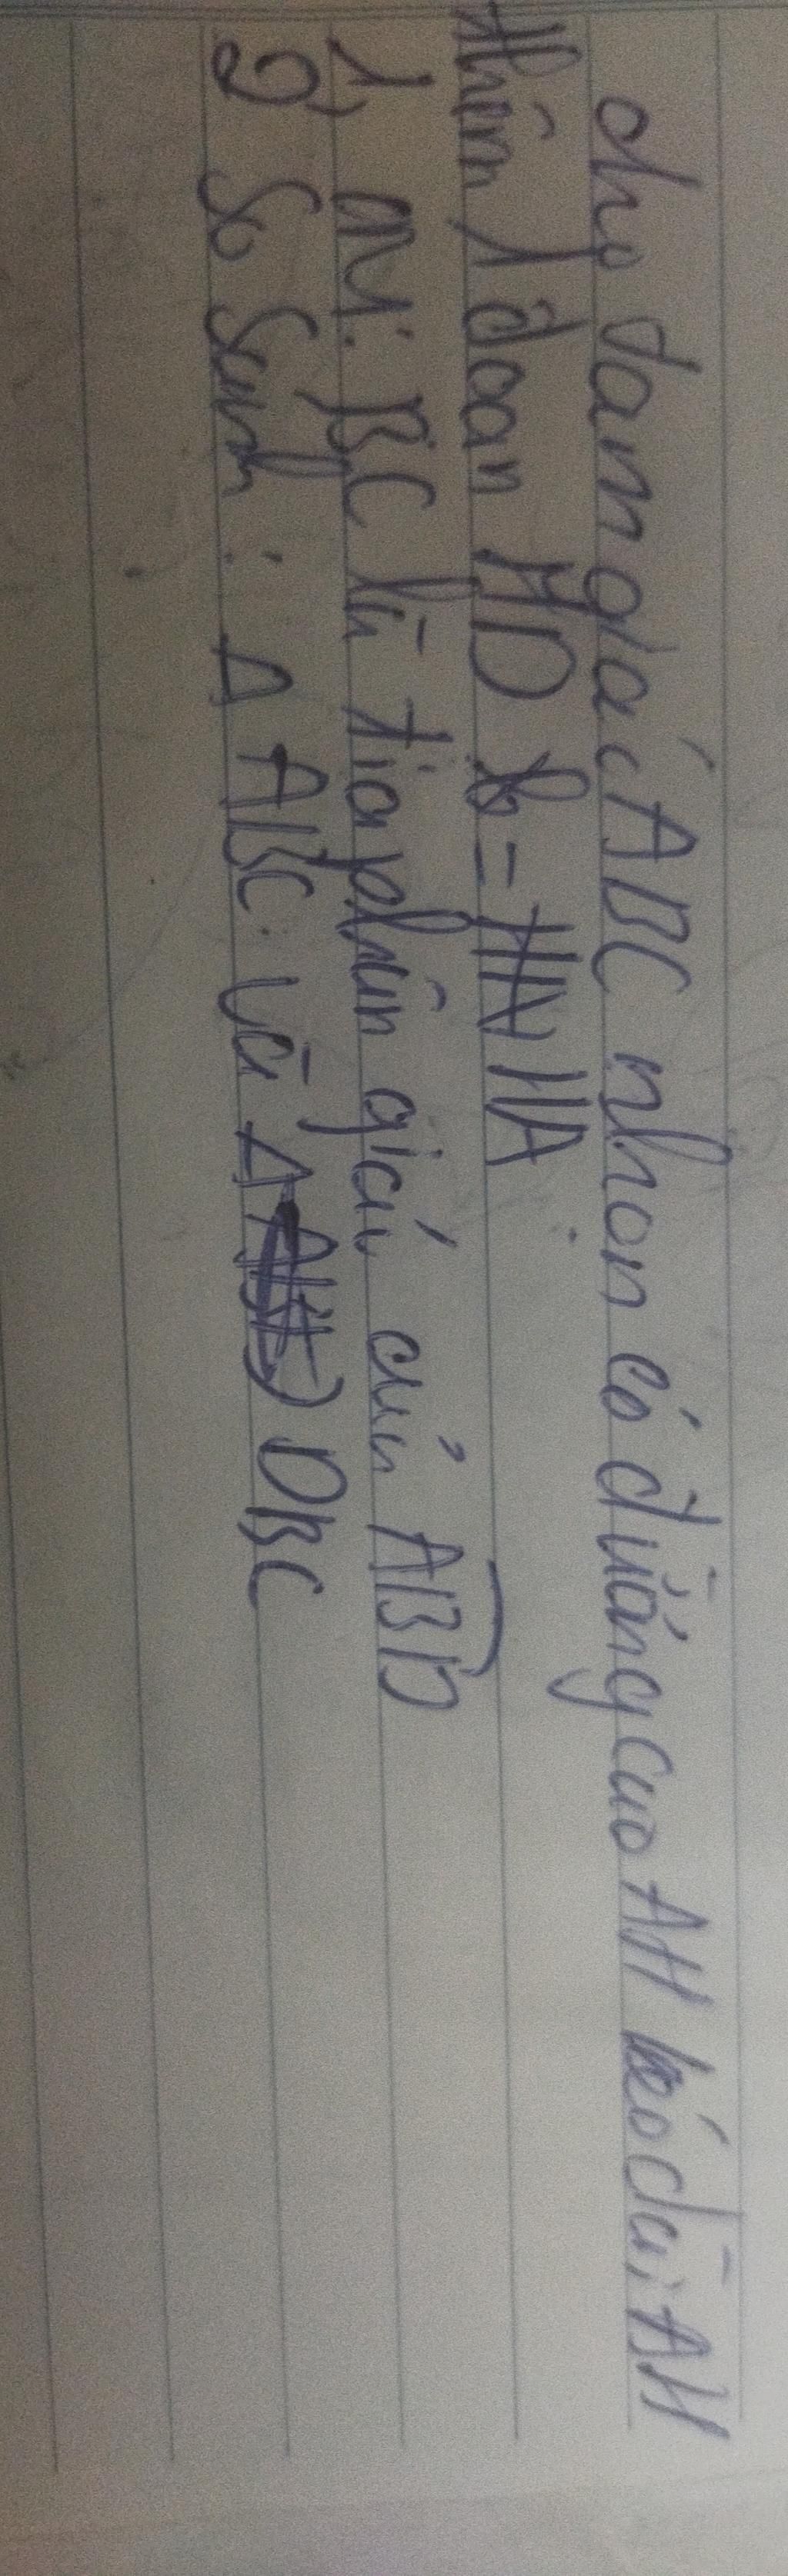 cho tam giác ABC nhon có đường cao AH kéo dài AH
thêm 1 đoan HD = HA
1, CM: BC là tia phân giác của ABD
2, So sánh : Δ ABC và Δ DBC